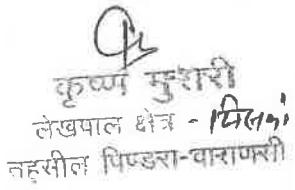 कृष्ण मुरारी
लेखपाल क्षेत्र -
तहसील पिण्डरा-वाराणसी